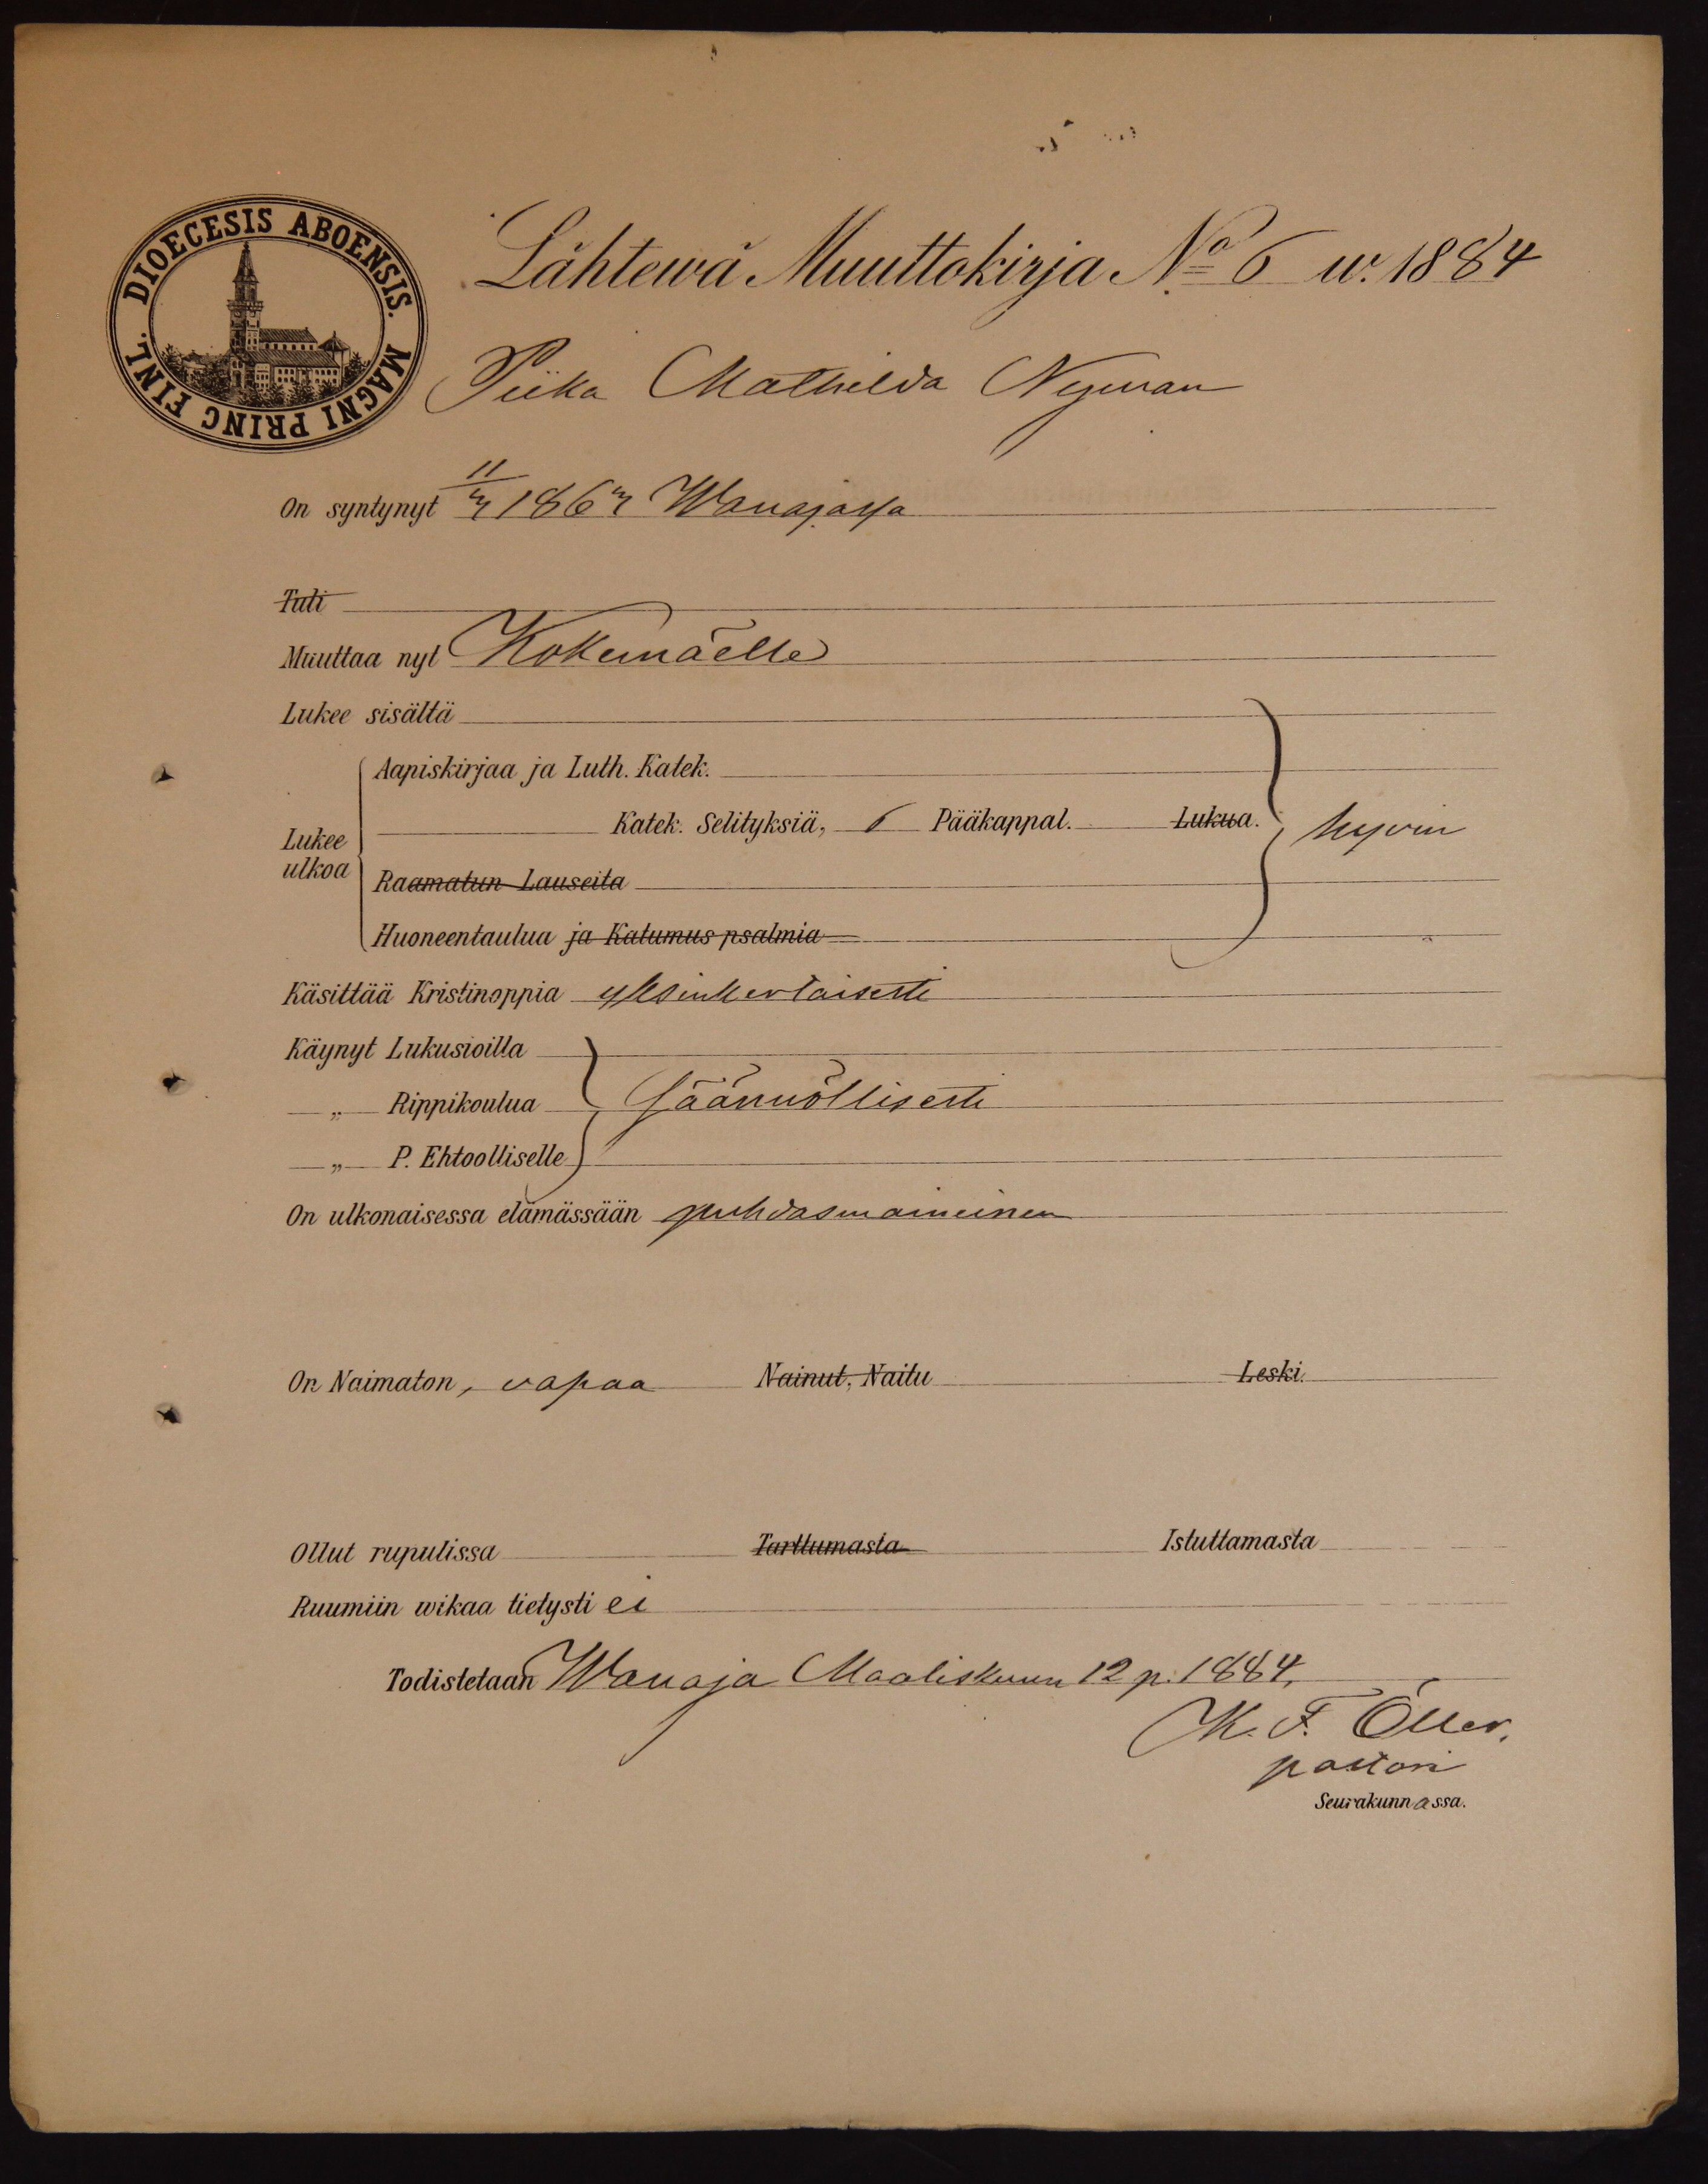 DIOECESIS ABOENSIS. MAGNI PRINC FINL.
Lähtewä Muuttokirja No 6 w. 1884
Piika Mathilda Nyman
On syntynyt 11/3 1863 Wanajassa
Tuli
Muuttaa nyt Kokemäelle
Lukee sisältä
Aapiskirjaa ja Luth. Katek.
Lukee ulkoa
Katek. Selityksiä, 6 Pääkappal. Lukua. hyvin
Raamatun Lauseita
Huoneentaulua ja Katumus psalmia
Käsittää Kristinoppia yksinkertaisesti
Käynyt Lukusioilla
„ Rippikoulua säännöllisesti
„ P. Ehtoolliselle
On ulkonaisessa elämässään puhdasmaineinen
On Naimaton, vapaa Nainut, Naitu Leski.
Ollut rupulissa Tarttumasta Istuttamasta
Ruumiin wikaa tietysti ei
Todistetaan Wanaja Maaliskuun 12 p. 1884,
K. F. Öller.
pastori
Seurakunnassa.